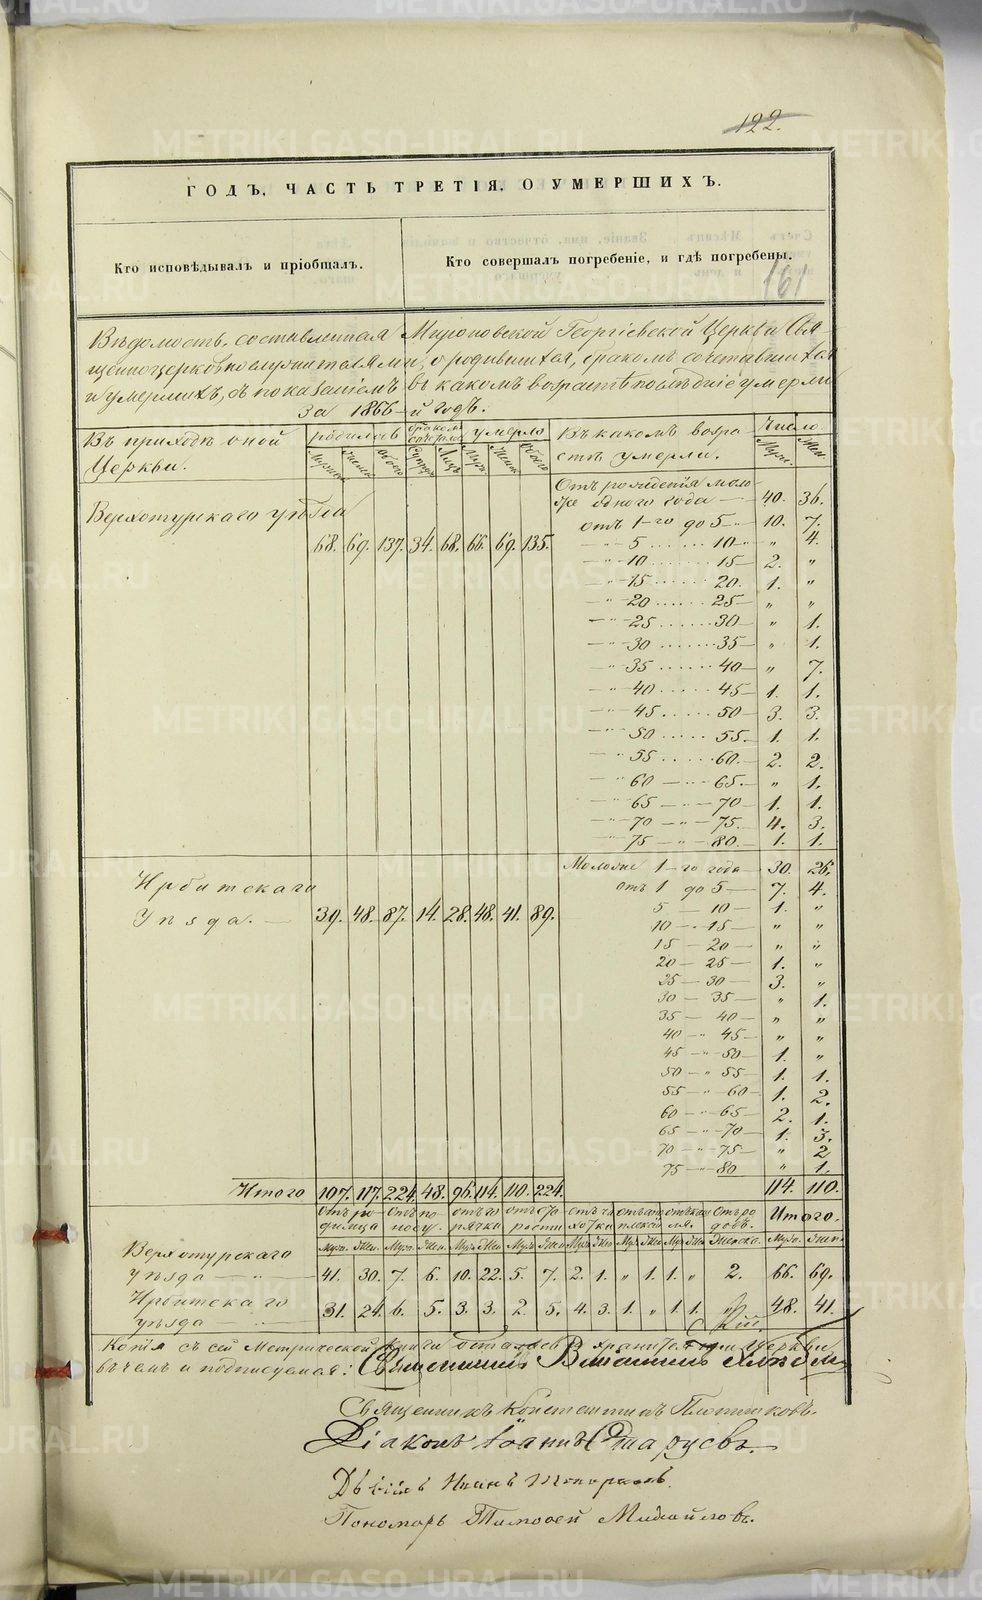 122.
ГОДЪ, ЧАСТЬ ТРЕТІЯ, О УМЕРШИХЪ.
Кто исповѣдывалъ и пріобщалъ. Кто совершалъ погребеніе, и гдѣ погребены.
161
Вѣдомость, составленная Мироновской Георгіевской Церкви Свя-
щенноцерковнослужителями, о родившихся, бракомъ сочетавшихся
и умершихъ, съ показаніемъ въ какомъ возрастѣ послѣдніе умерли
за 1866-й годъ.
Въ приходѣ оной Церкви. родилось бракомъ умерло Въ каком возра- стѣ умерли. Число
Муж. Жен.
Отъ рожденія моло-
же одного года — 40. 36.
Верхотурскаго уѣзда
отъ 1-го до 5 — 10. 7.
68. 69. 137. 34. 68. 66. 69. 135.
— " 5 ...... 10 — " 4.
— " 10 ...... 15 — 2. "
— " 15 ...... 20. 1. "
— " 20 ...... 25 — " "
— " 25 ...... 30 — " 1.
— " 30 ...... 35 — " 1.
— " 35 ...... 40 — " 7.
— " 40 ...... 45 — 1. 1.
— " 45 ...... 50 — 3. 3.
— " 50 ...... 55. — 1. 1.
— " 55 ...... 60. — 2. 2.
— " 60 — " — 65. — " 1.
— " 65 — " — 70 — 1. 1.
— " 70 — " — 75. — 4. 3.
— " 75 — " — 80. — 1. 1.
Моложе 1-го года — 30. 26.
Ирбитскаго
отъ 1 до 5 — 7. 4.
Уѣзда. — 39. 48. 87. 14. 28. 48. 41. 89.
5 — 10 — 1. "
10 — 15 — " "
15 — 20 — " "
20 — 25 — 1. "
25 — 30 — 3. "
30 — 35 — " 1.
35 — 40 — " "
40 — " 45 — " "
45 — " 50 — 1. "
50 — " 55 — 1. 1.
55 — " 60 — 1. 2.
60 — " 65 — 2. 1.
65 — " 70 — 1. 3.
70 — " 75 — " 2
75 — " 80 " 1.
Итого 107. 117. 224. 48. 96. 114. 110. 224. 114. 110.
Отъ ро- димца Отъ по- носу. отъ го- рячки отъ ста- рости отъ ча- хотки Отъ ро- довъ. Итого.
Муж. Жен. Муж. Жен. Муж. Жен. Муж. Жен. Муж. Жен. Муж. Жен. Муж. Жен. Женско. Муж. Жен.
Верхотурскаго
уѣзда — " — 41. 30. 7. 6. 10. 22. 5. 7. 2. 1. " 1. 1. " 2. 66. 69.
Ирбитскаго
уѣзда — 31. 24. 6. 5. 3. 3. 2. 5. 4. 3. 1. " 1. 1. " 48. 41.
Копія съ сей Метрической Книги осталась въ при Церкви
въ чемъ и подписуемся: Священникъ
Священникъ Константинъ Плотниковъ.
Діаконъ Іоаннъ Старцевъ.
Дьячекъ Иванъ
Пономарь Тимоѳей Михайловъ.
METRIKI.GASO-URAL.RU